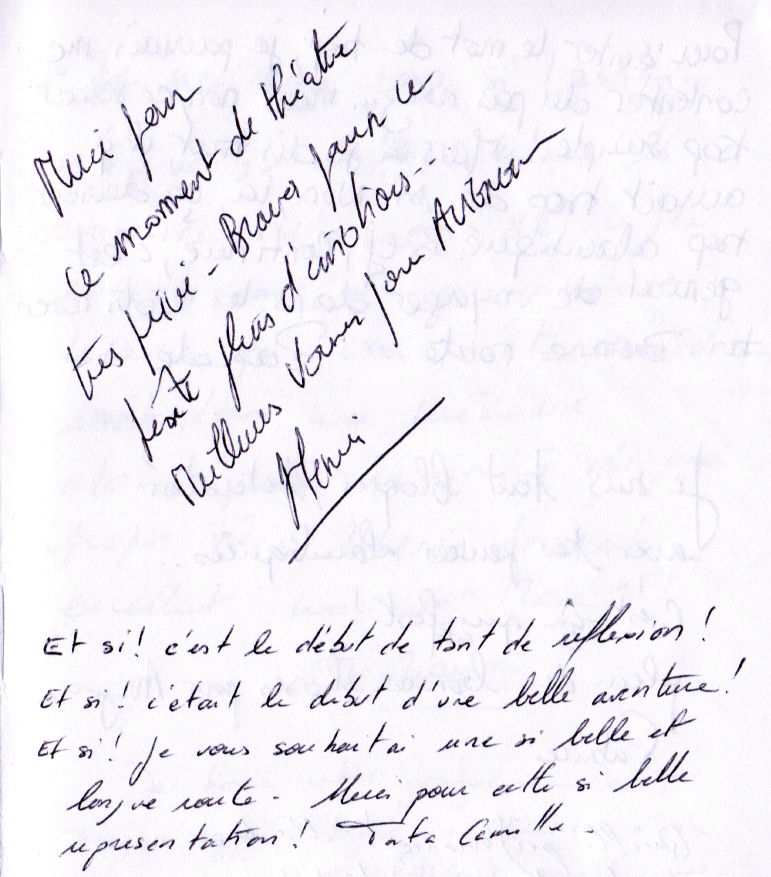 Merci pour
ce moment de théâtre
très privé - Bravo pour ce
texte plein d'émotions...
Meilleurs voeux pour
Henri
Et si! c'est le début de tant de réflexion!
Et si! c'était le début d'une belle aventure!
Et si! Je vous souhaitai une si belle et
longue route - Merci pour cette si belle
représentation! Tata Camille -